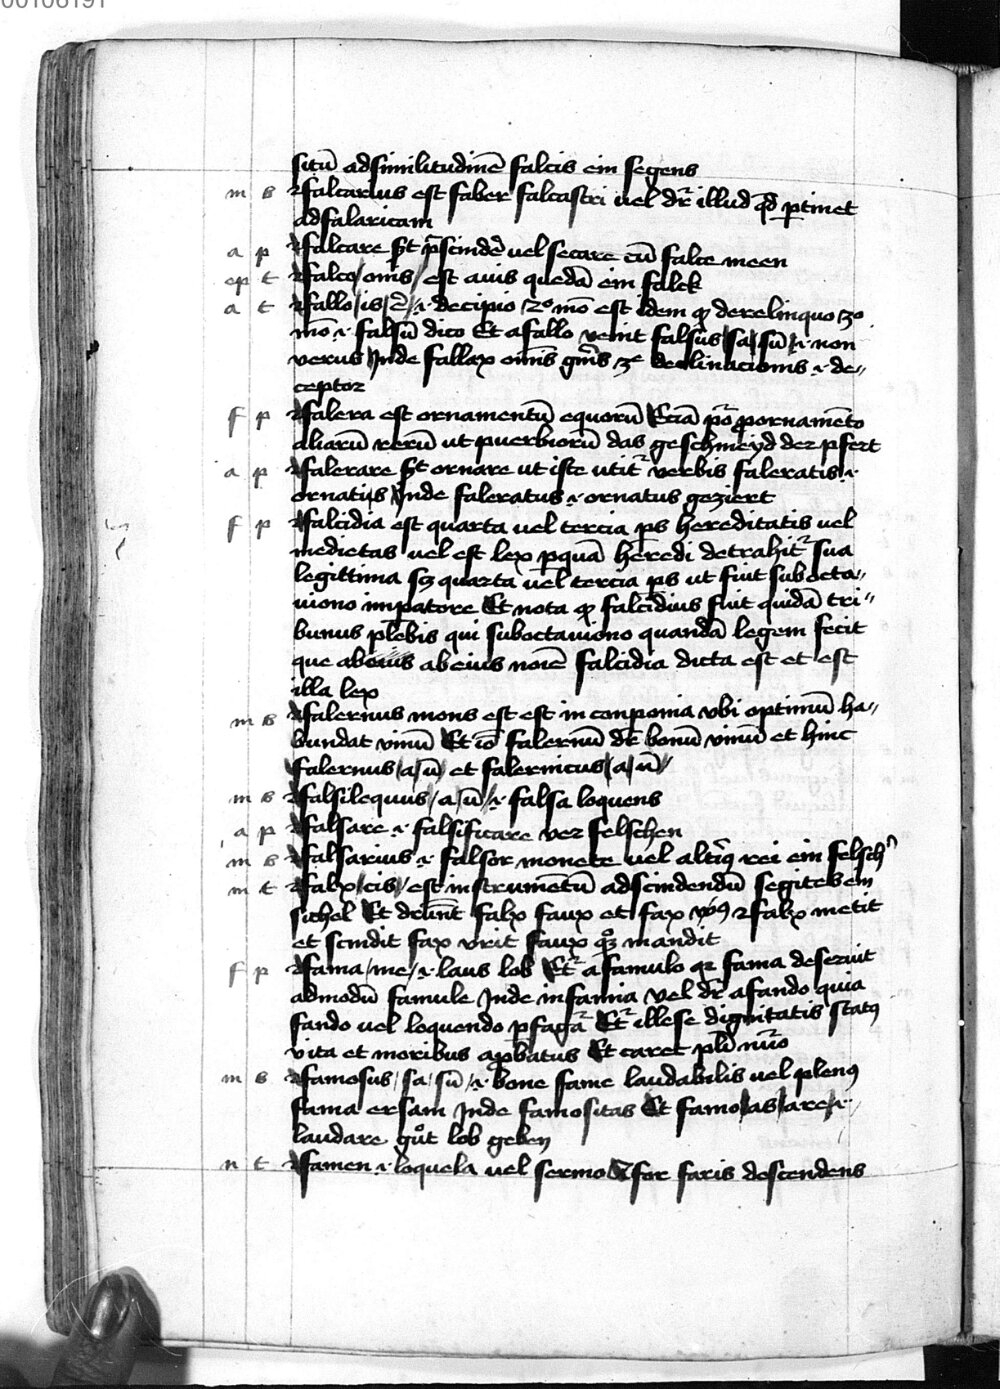 00106191
sitū ad similitudinē falcis ein segens
m s Falcarius est faber falcastri uel dr̄ illud qd̄ ꝑtinet
ad falaricam
a p Falcare ꝑscindē uel secare cū falce meen
ep t Falco / onis / est auis quedā ein falck
a t Fallo / is / decipio 2º mō est idem ꝙ derelinquo 3º
mō .i. falsū dico Et a fallo venit falsus / sa / sū .i. non
verus Inde fallax omīs gn̄is 3e declinacionis .i. de〃
ceptor
f p Falera est ornamentū equorū Eciā ornamēto
aliarū rerū ut puerbiorū das geschmeyd der pfert
a p Falerare ornare ut iste utit̄ verbis faleratis .i.
ornatis Inde faleratus .i. ornatus geziert
f p Falcidia est quarta uel tercia ps hereditatis uel
medietas uel est lex ꝑ quā heredi detrahit̄ sua
legittima sꝫ quarta uel tercia ps ut fuit sub octa〃
uiono imꝑatore Et nota ꝙ falcidius fuit quidā tri〃
bunus plebis qui sub octauiono quandā legem fecit
que ab eius noīe falcidia dicta est et est
illa lex
m s Falernus mons est est in conponia vbi optimū ha〃
bundat vinū Et iō falernū dr̄ bonū vinū et hinc
falernus / a / ū / et falernicus / a / ū /
m s Falsilequus / a / ū / .i. falsa loquens
a p Falsare .i. falsificare ver felschen
m s Falsarius .i. falsor monete uel rei ein felsch
m t Falx / cis / est instrumētū ad scindendū segites ein
sichel Et falx faux et fax falx metit
et scindit fax vrit faux mandit
f p Fama / me / .i. laus lob a famulo qr fama deseruit
ad modū famule Inde infamia vel dr̄ a fando quia
fando uel loquendo illese dignitatis status
vita et moribus aꝓbatus Et caret
m s Famosus / sa / sū / .i. bone fame laudabilis uel plenus
fama ersam Inde famositas Et famo / as / are / .i.
laudare gůt lob geben
n t Famen .i. loquela uel sermo for faris descendens